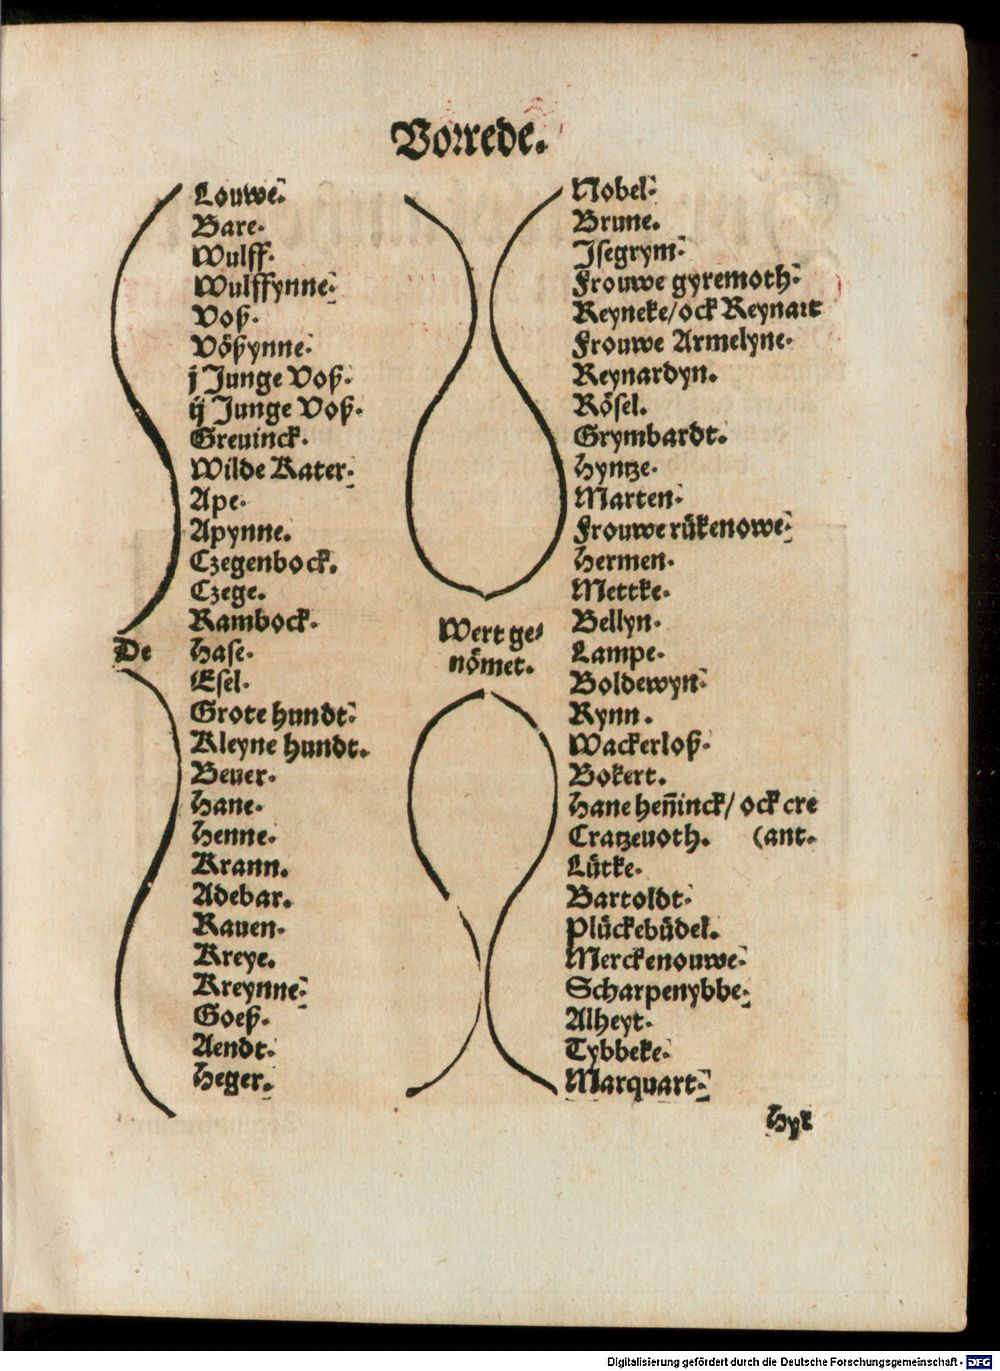 Vorrede.
Louwe.
Bare.
Wulff.
Wulffynne.
Voß.
Vößynne.
j Junge Voß.
ij Junge Voß.
Greuinck.
Wilde Kater.
Ape.
Apynne.
Czegenbock.
Czege.
Rambock.
De
Hase.
Esel.
Grote hundt.
Kleyne hundt.
Beuer.
Hane.
Henne.
Krann.
Adebar.
Rauen.
Kreye.
Kreynne.
Goeß.
Aendt.
Heger.
Wert ge⸗
nömet.
Nobel.
Brune.
Jsegrym.
Frouwe gyremoth.
Reyneke/ ock Reynart
Frouwe Armelyne.
Reynardyn.
Rösel.
Grymbardt.
Hyntze.
Marten.
Frouwe rükenowe.
Hermen.
Mettke.
Bellyn.
Lampe.
Boldewyn.
Rynn.
Wackerloß.
Bokert.
Hane heñinck/ ock cre
Cratzeuoth. (ant.
Lütke.
Bartoldt.
Plückebüdel.
Merckenouwe.
Scharpenybbe.
Alheyt.
Tybbeke.
Marquart.
Hyr
Digitalisierung gefördert durch die Deutsche Forschungsgemeinschaft - DFG